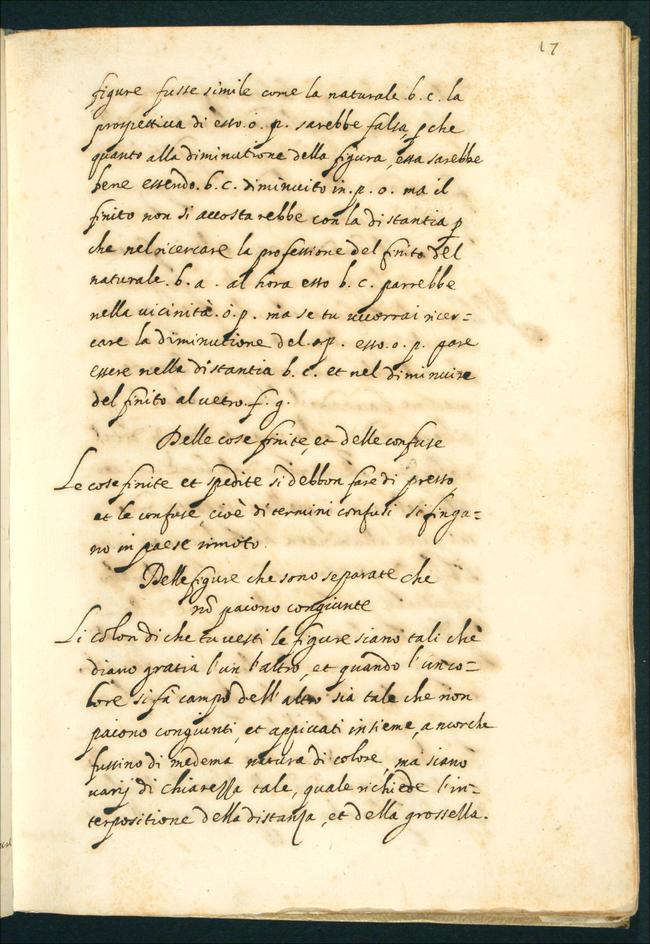 17
figure fusse simile come la naturale b. c. la
prospettiua di esso. o. p. sarebbe falsa, p che
quanto alla diminutione della figura, essa sarebbe
bene essendo. b. c. diminuito in. p. o. ma il
finito non si accosta rebbe con la distantia p
che nel ricercare la professione del finito del
naturale. b. a. al hora esso b. c. parrebbe
nella uicinità. o. p. ma se tu uuorrai ricer=
care la diminutione del. op. esso. o. p. pare
essere nella distantia b. c. et nel diminuire
del finito al uetro. f. g.
Delle cose finite, et delle confuse
Le cose finite et spedite si debbon fare di presso
et le confuse, cioè di termini confusi si finga=
no in paese rimoto.
Delle figure che sono separate che
nō paiono congiunte
Li colori di che tu uesti le figure siano tali che
diano gratia l'un l'altro, et quando l'un co=
lore si fà campo dell' altro sia tale che non
paiono congiunti, et appicati insieme, ancorche
fussino di medema natura di colore, ma siano
uarij di chiarezza tale, quale richiede l'in=
terpositione della distanza, et della grossella.